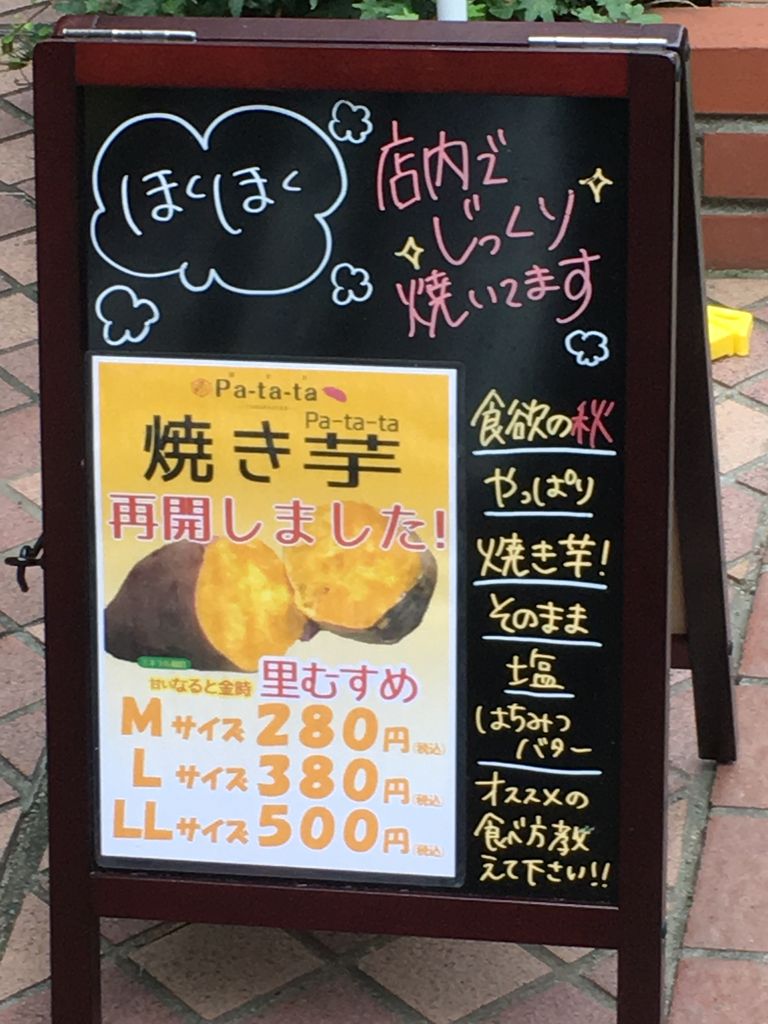 ほくほく
店内で
じっくり
焼いてます
Pa-ta-ta
Pa-ta-ta
焼き芋
再開しました!
甘いなると金時 里むすめ
Mサイズ280円(税込)
Lサイズ380円(税込)
LLサイズ500円(税込)
食欲の秋
やっぱり
焼き芋!
そのまま
塩
はちみつ
バター
オススメの
食べ方教
えて下さい!!